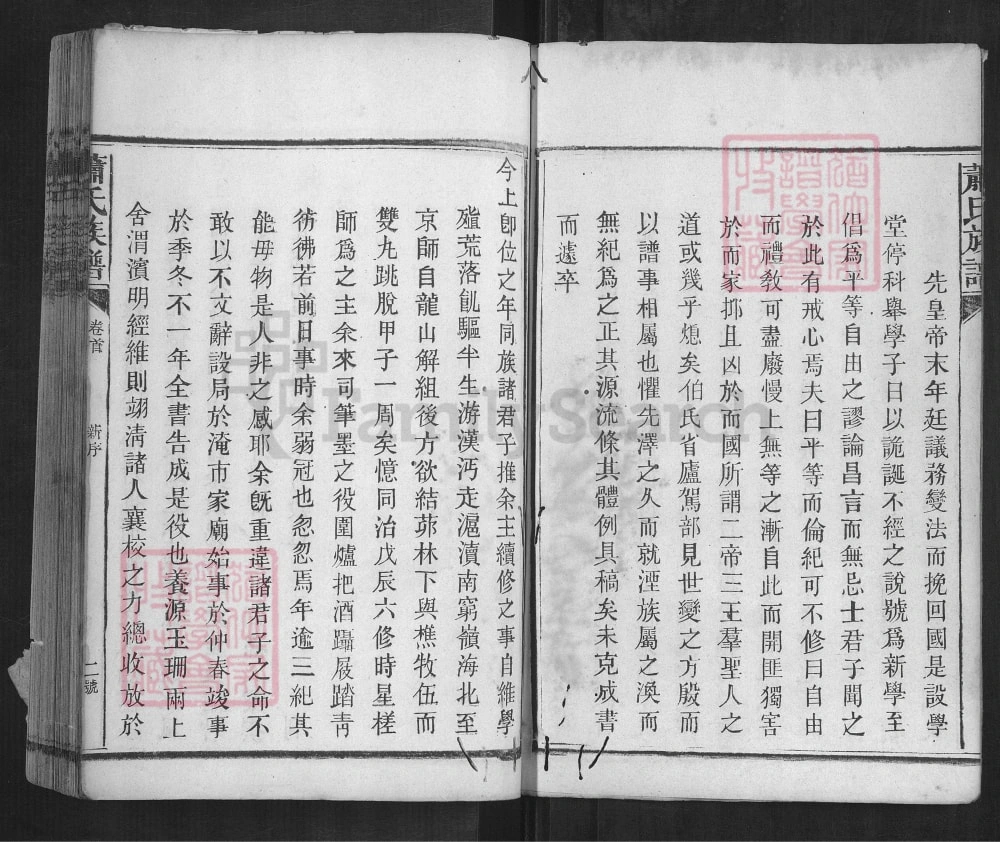 先皇帝末年廷議務變法而挽回國是設學
堂停科舉學子日以詭誕不經之說號爲新學至
倡爲平等自由之謬論昌言而無忌士君子聞之
於此有戒心焉夫曰平等而倫紀可不修曰自由
而禮教可盡廢慢上無等之漸自此而開匪獨害
於而家抑且凶於而國所謂二帝三王羣聖人之
道或幾乎熄矣伯氏省廬駕部見世變之方殷而
以譜事相屬也懼先澤之久而就湮族屬之渙而
無紀爲之正其源流條其體例具稿矣未克成書
而遽卒
今上卽位之年同族諸君子推余主續修之事自維學
殖荒落飢驅半生游漢沔走滬瀆南窮嶺海北至
京師自龍山解組後方欲結茆林下與樵牧伍而
雙九跳脫甲子一周矣憶同治戊辰六修時星槎
師爲之主余來司筆墨之役圍爐把酒躡屐踏靑
彷彿若前日事時余弱冠也忽忽焉年逾三紀其
能毋物是人非之感耶余旣重違諸君子之命不
敢以不文辭設局於淹市家廟始事於仲春竣事
於季冬不一年全書告成是役也養源玉珊兩上
舍渭濱明經維則翊淸諸人襄校之力總收放於
蕭氏族譜
卷首
新序
二號
蕭氏族譜
FamilySearch